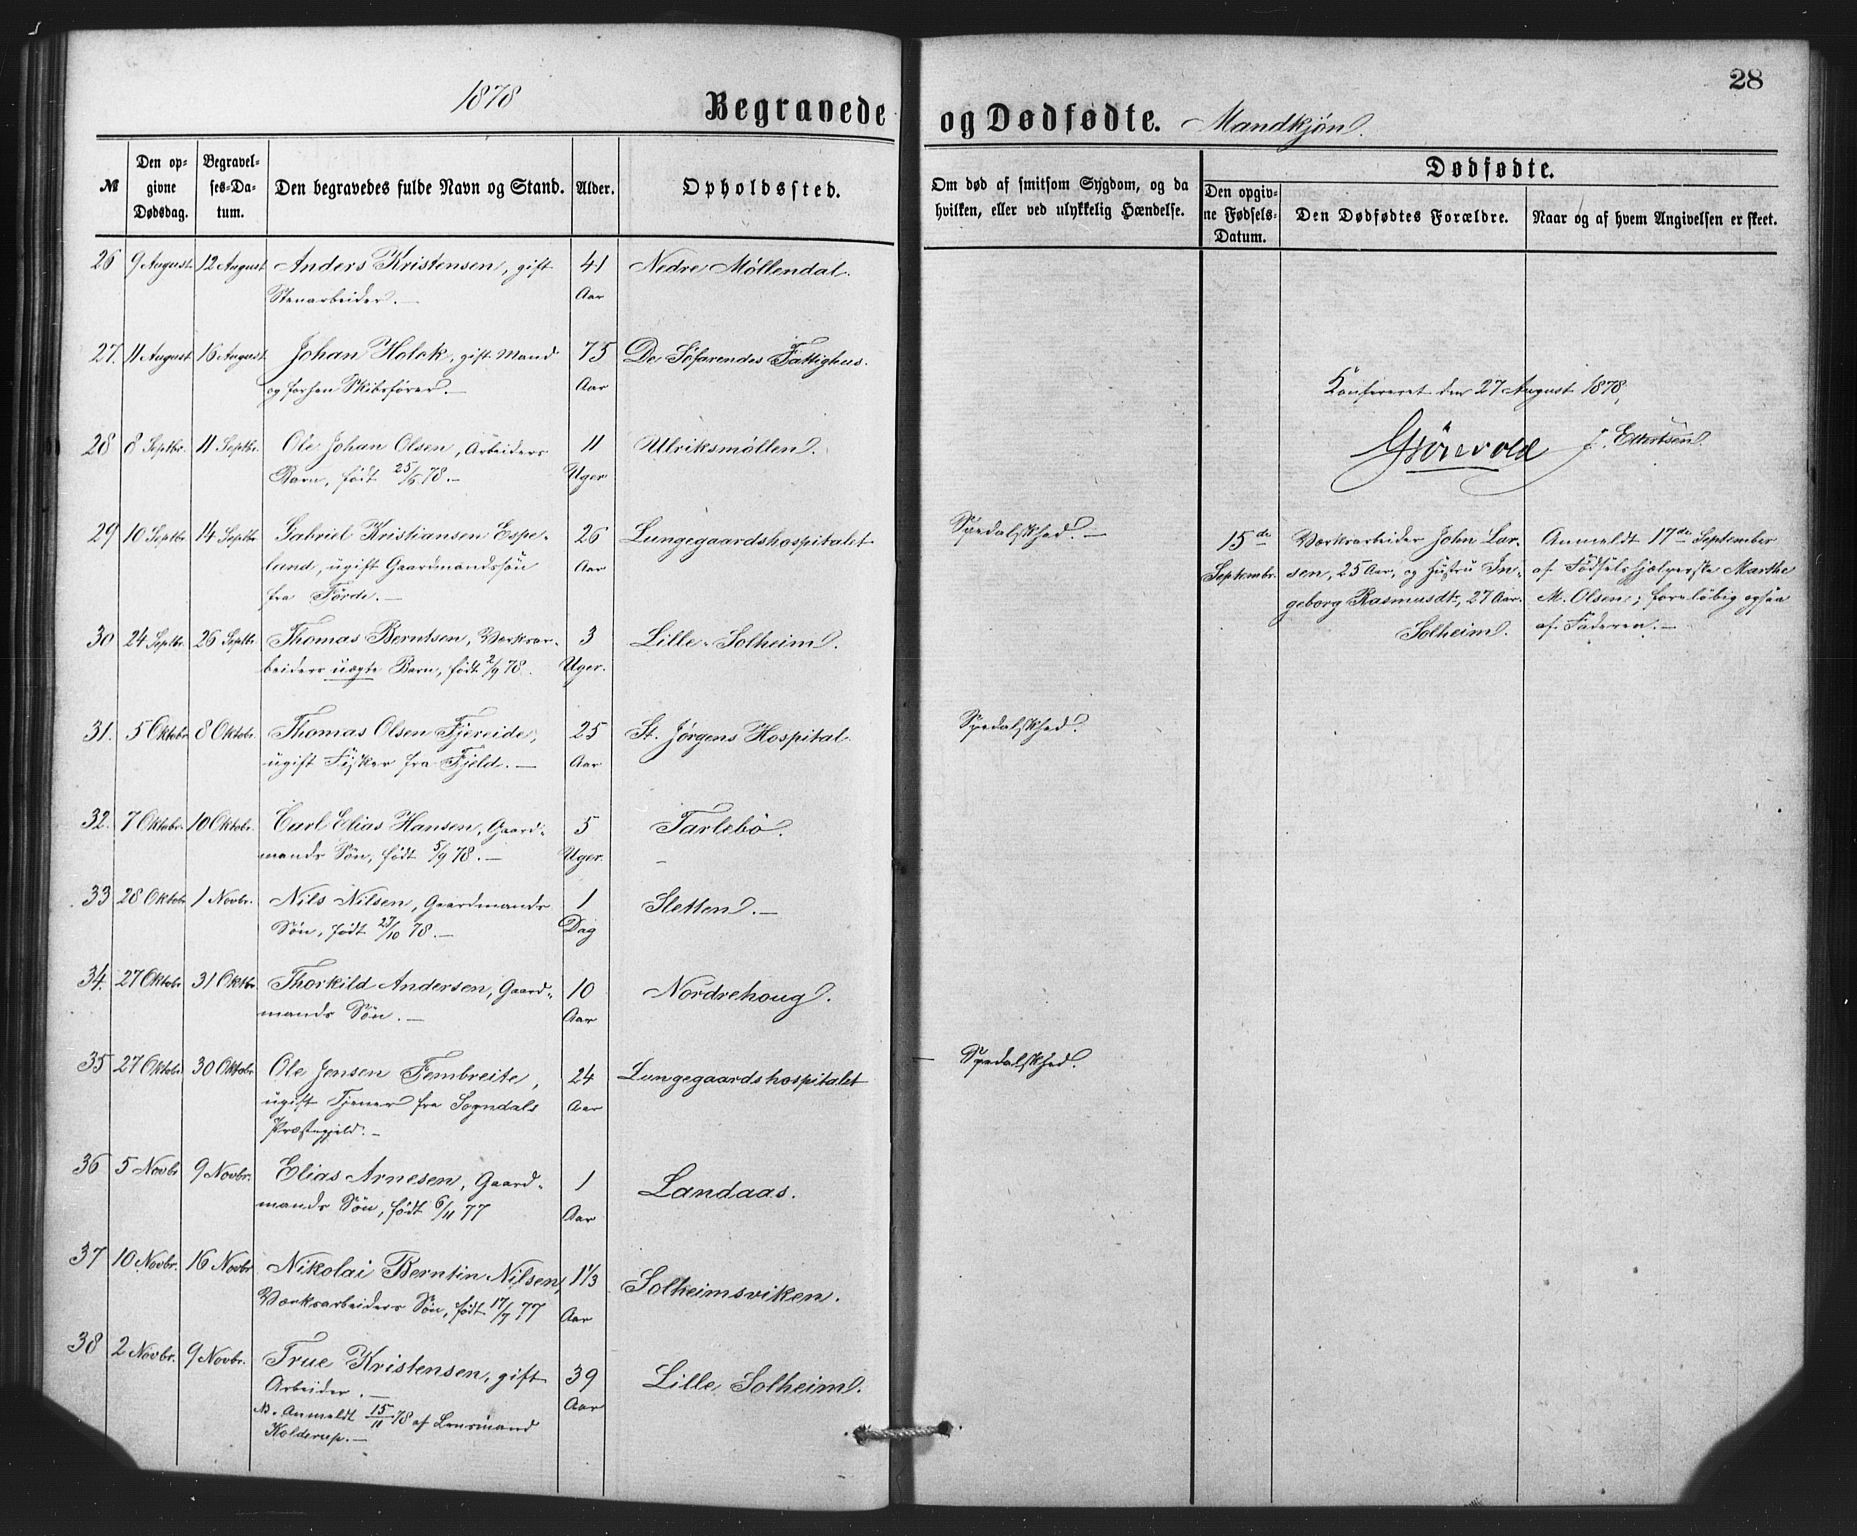 28
1878
Begravede og Dødfødte. Mandkjön.
№
Den opgivne Dødsdag.
Begravelses-Datum.
Den begravedes fulde Navn og Stand.
Alder.
Opholdssted.
Om død af smitsom Sygdom, og da hvilken, eller ved ulykkelig Hændelse.
Dødfødte.
Den opgivne Fødsels-Datum.
Den Dødfødtes Forældre.
Naar og af hvem Angivelsen er skeet.
26 9 August 12 August Anders Kristensen, gift 41 Nedre Möllendal.
Stenarbeider.— Aar
27. 11 August 16 August Johan Holck, gift Mand 75 De Söfarendes Fattighus.
og forhen Skibsförer.— Aar
Konfereret den 27 August 1878,
Grönvold
28 8 Septbr. 11 Septbr. Ole Johan Olsen, Arbeiders 11 Ulriksmöllen.
Barn, född 25/6 78.— Uger
29 10 Septbr 14 Septbr Gabriel Kristiansen Espe- 26 Lungegaardshospitalet Spedalskhed.—
lund, ugift Gaardmandssön Aar
fra Förde.—
15de Værksarbeider John Lar- Anmeldt 17de September
Septembr. sen, 25 Aar, og Hustru In- af Födselshjælperske Marthe
geborg Rasmusdt., 27 Aar. M. Olsen; foreløbig ogsaa
Solheim. af Faderen.—
30 24 Septbr. 26 Septbr. Thomas Berntsen, Værksar- 3 Lille-Solheim.
beiders uægte Barn, född 2/9 78. Uger.
31. 5 Oktobr 8 Oktobr. Thomas Olsen Fjereide, 25 St. Jörgens Hospital. Spedalskhed.
ugift Fisker fra Fjeld.— Aar
32. 7 Oktobr. 10 Oktobr. Carl Elias Hansen, Gaard- 5 Tarlebö.
mands Sön, född 5/9 78.— Uger.
33 28 Oktobr 1 Novbr. Nils Nilsen, Gaardmands 1 Sletten.—
Sön, född 27/10 78.— Dag
34. 27 Oktobr 31 Oktbr. Thorkild Andersen, Gaard- 10 Nordrehoug.
mands Sön.— Aar
35 27 Oktobr 30 Oktobr Ole Jensen Fembreite, 24 Lungegaardshospitalet Spedalskhed.
ugift Tjener fra Sogndals Aar
Præstegjeld.—
36 5 Novbr 9 Novbr. Elias Arnesen, Gaard- 1 Landaas.
mands Sön, född 6/11 77 Aar
37 10 Novbr. 16 Novbr Nikolai Berntin Nilsen, 1 1/3 Solheimsviken.
Værksarbeiders Sön, född 17/7 77 Aar
38 2 Novbr. 9 Novbr. True Kristensen, gift 39 Lille Solheim.
Arbeider.— Aar
Anmeldt 15/11 78 af Lensmand
Kolderup.—